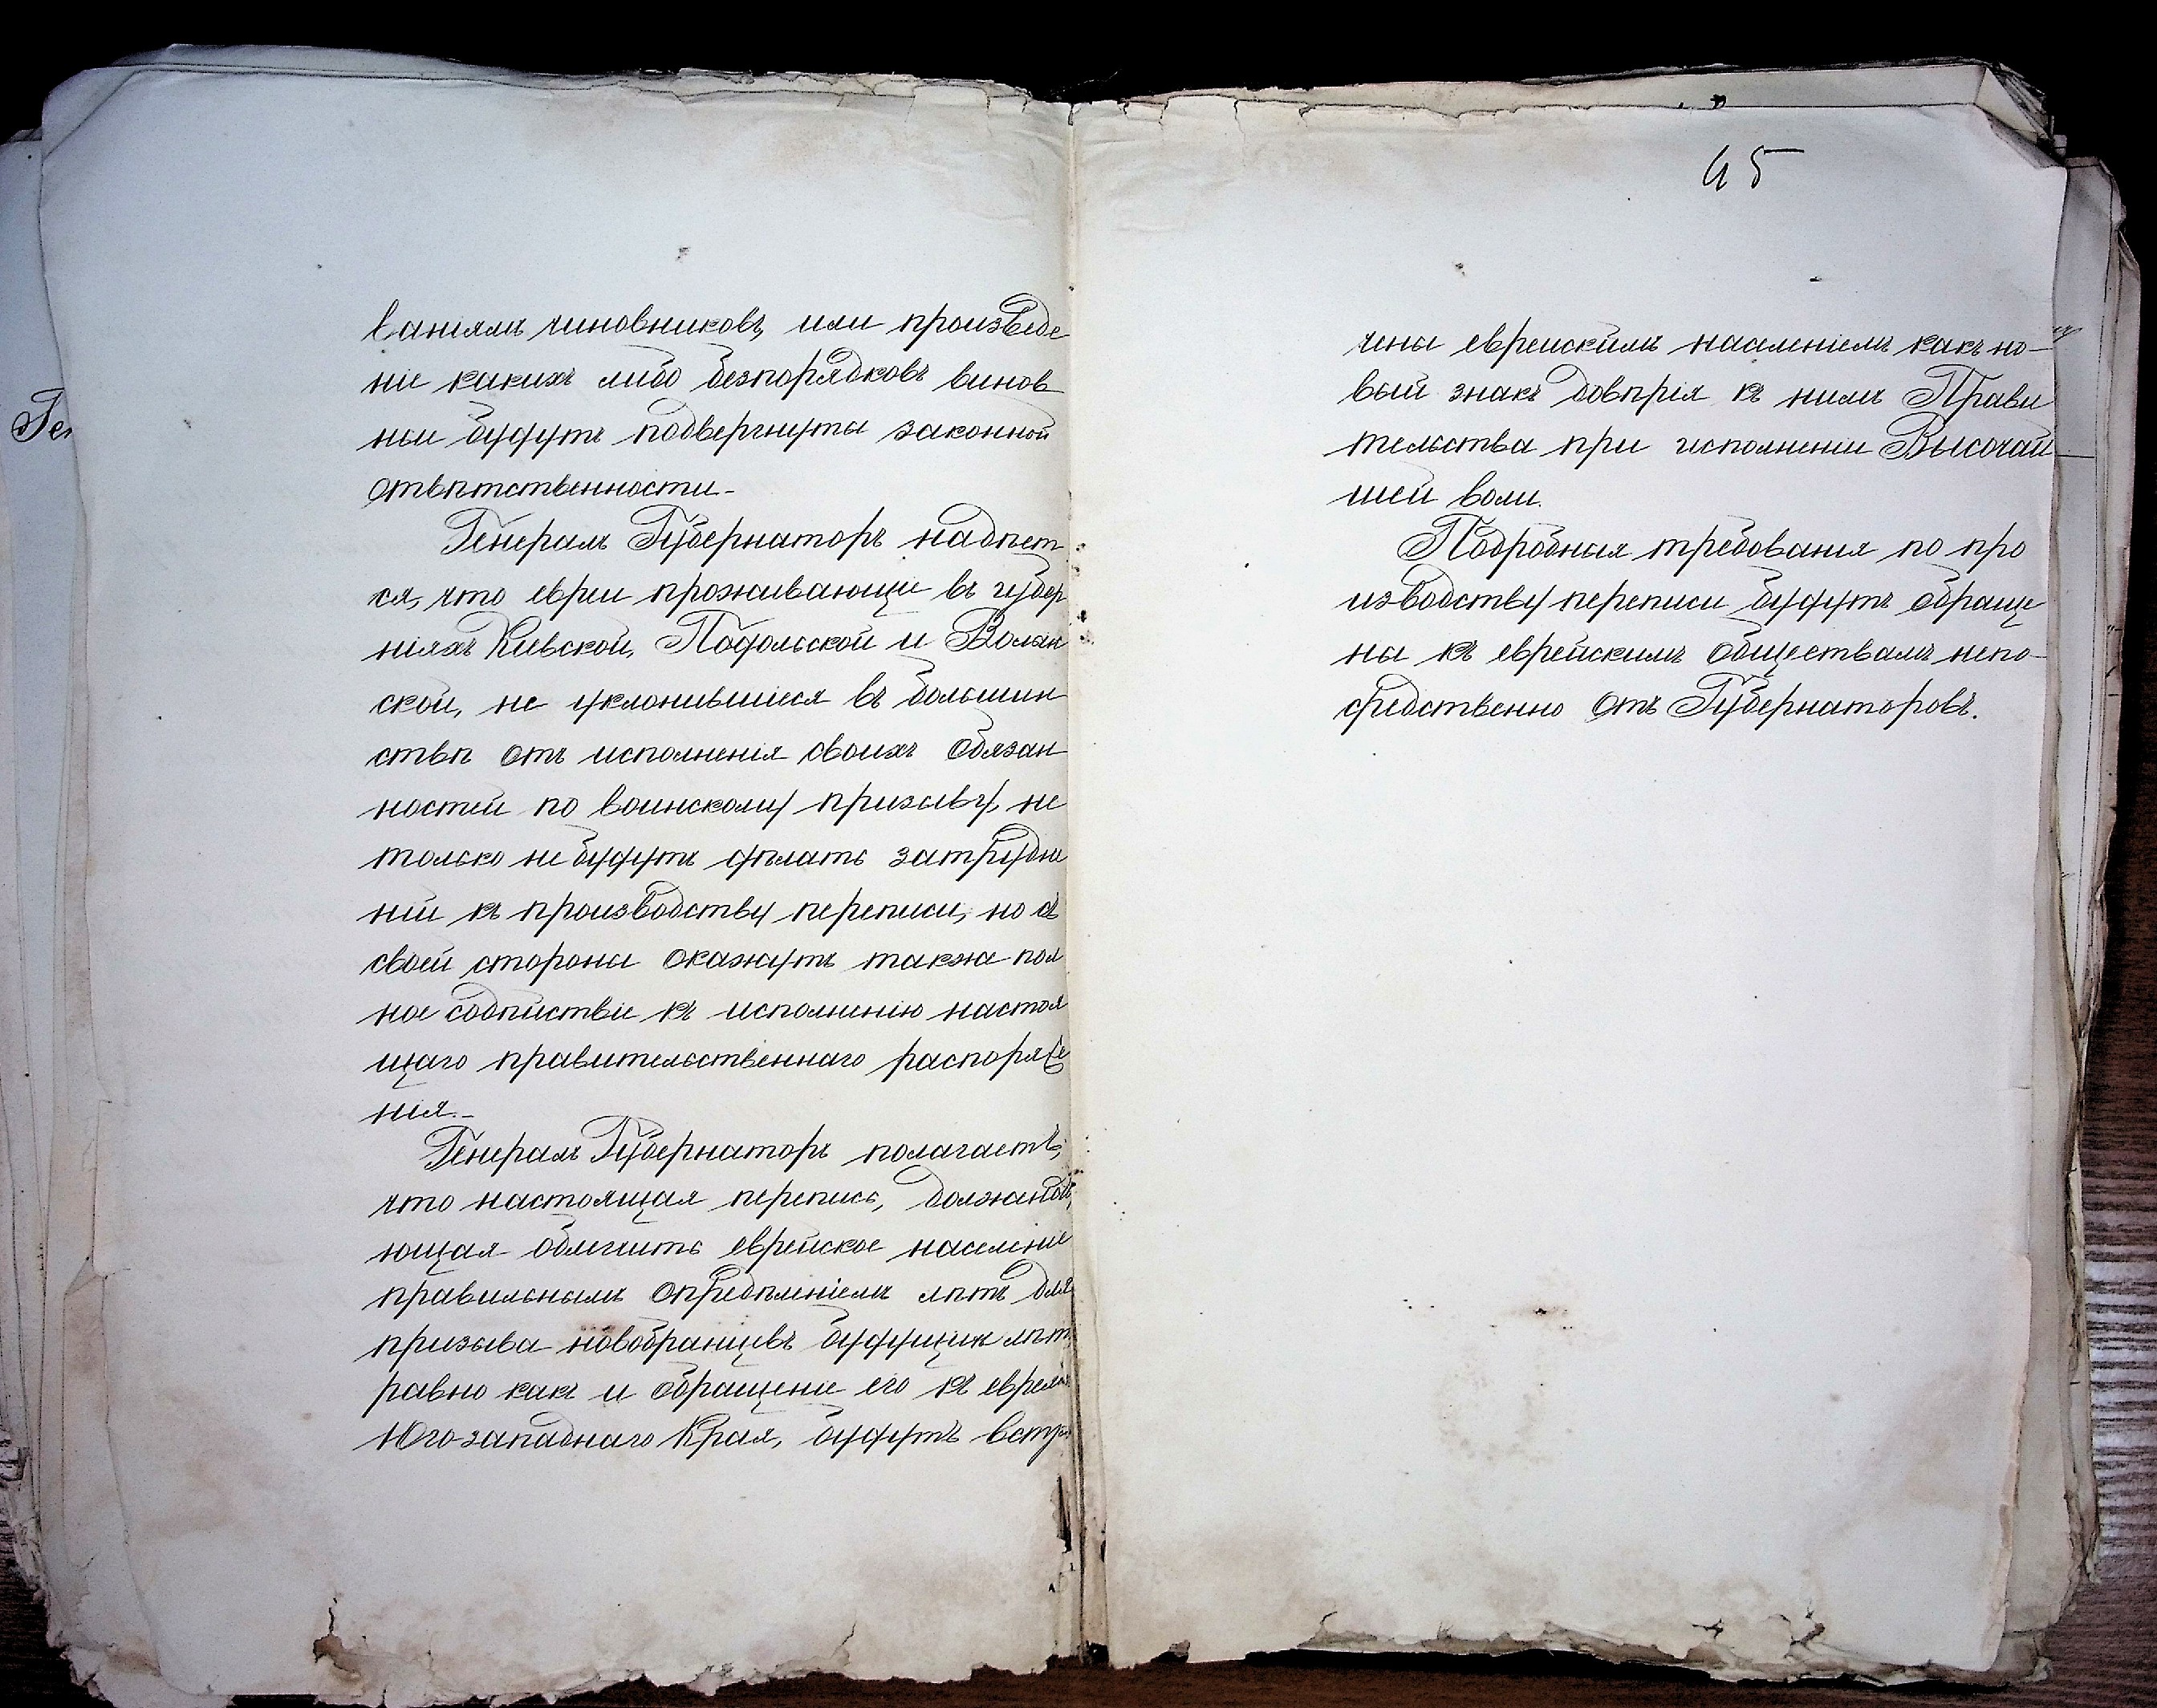 ваніямъ чиновниковъ, или произведе
ніе какихъ либо безпорядковъ винов
ныи будутъ подвергнуты законной
отвѣтственности.-
Генералъ Губернаторъ надѣет
ся, что евреи проживающіе въ губер
ніяхъ Кіевской, Подольской и Волын
ской, не уклонившіеся въ большин
ствѣ отъ исполненія своихъ обязан
ностей по воинскому призыву, не
только не будутъ дѣлать затрудне
ній къ производству переписи, но съ
своей стороны окажутъ также пол
ное содѣйствіе къ исполненію настоя
щаго правительственнаго распоряже
нія.-
Генералъ Губернаторъ полагаетъ,
что настоящая перепись,
ющая облегчить еврейское населеніе
правильнымъ опредѣленіемъ лѣтъ для
призыва новобранцевъ будущихъ лѣтъ
равно какъ и обращеніе его къ евреямъ
Югозападнаго Края, будутъ встрѣ
45
чены еврейскимъ населеніемъ какъ но-
вый знакъ довѣрія къ нимъ Прави
тельства при исполненіи Высочай
шей воли.
Подробныя требованія по про
изводству переписи будутъ обраще
ны къ еврейскимъ обществамъ непо-
средственно отъ Губернаторовъ.